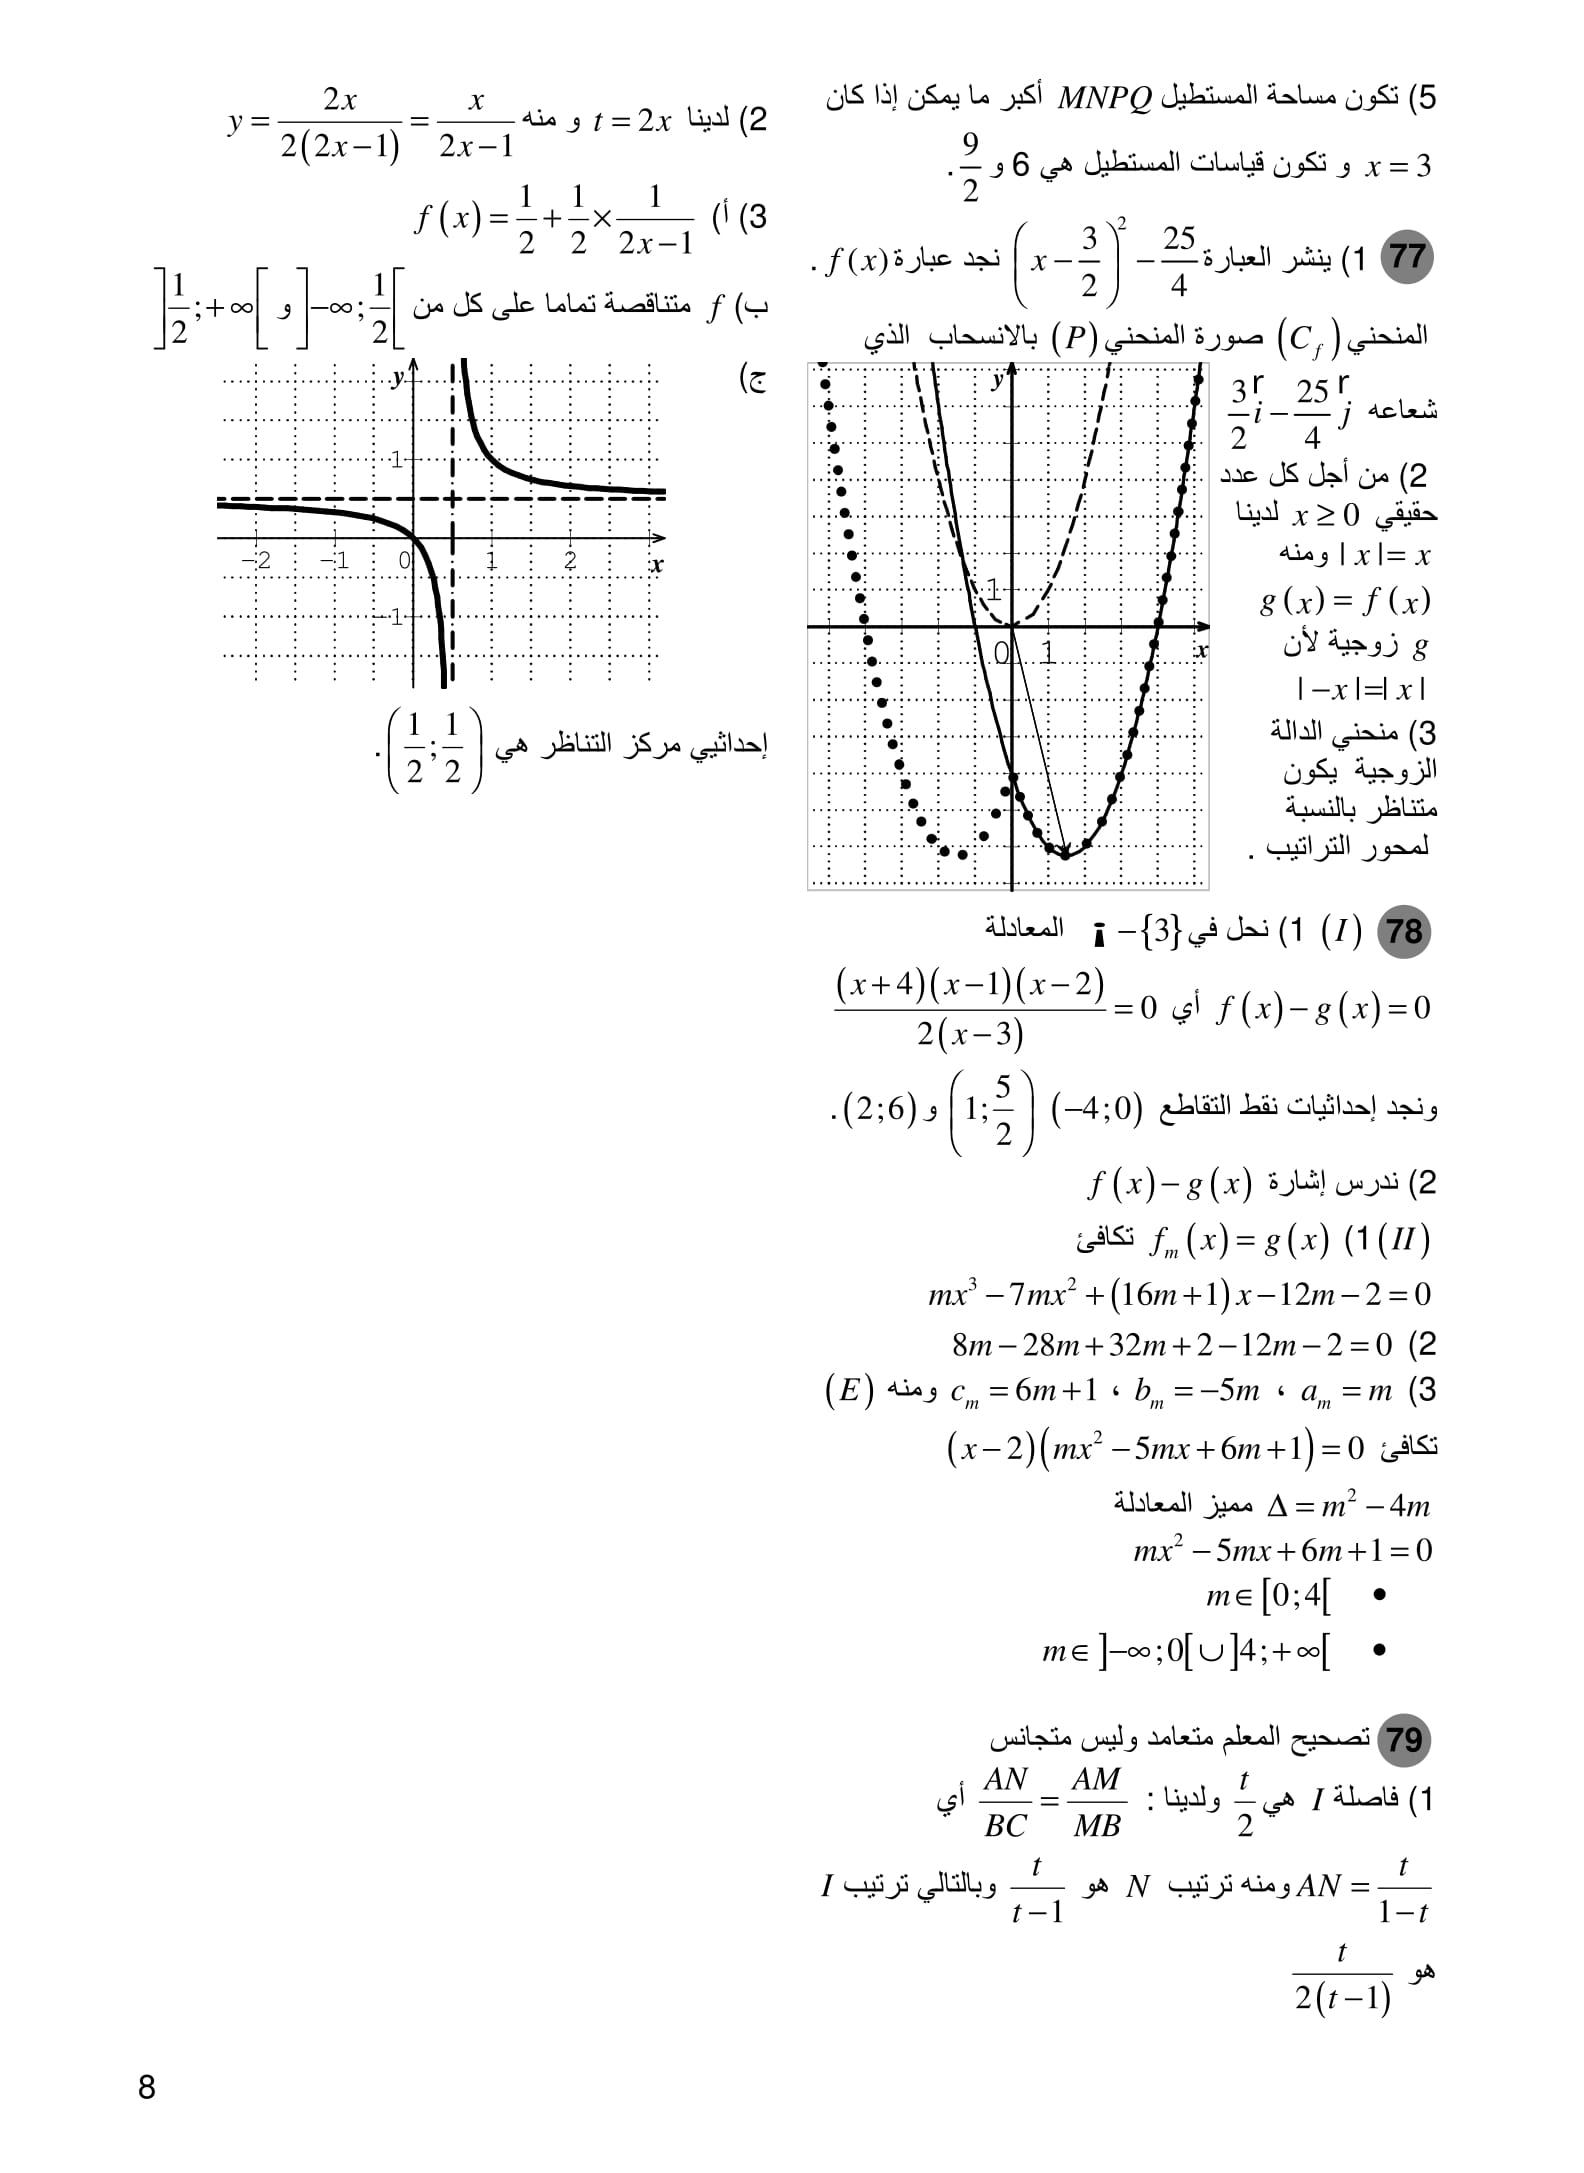 5) تكون مساحة المستطيل MNPQ أكبر ما يمكن إذا كان
x = 3 و تكون قياسات المستطيل هي 6 و 9/2 .
77 1) ينشر العبارة (x − 3/2)² − 25/4 نجد عبارة f(x) .
المنحني (C_f) صورة المنحني (P) بالانسحاب الذي
شعاعه 3/2 i − 25/4 j
2) من أجل كل عدد
حقيقي x ≥ 0 لدينا
|x| = x ومنه
g(x) = f(x)
g زوجية لأن
|−x| = |x|
3) منحني الدالة
الزوجية يكون
متناظر بالنسبة
لمحور التراتيب .
y
1
0 1 x
78 (I) 1) نحل في i − {3} المعادلة
f(x) − g(x) = 0 أي (x+4)(x−1)(x−2) / 2(x−3) = 0
ونجد إحداثيات نقط التقاطع (−4;0) (1; 5/2) و (2;6) .
2) ندرس إشارة f(x) − g(x)
(II) 1) f_m(x) = g(x) تكافئ
mx³ − 7mx² + (16m+1)x − 12m − 2 = 0
2) 8m − 28m + 32m + 2 − 12m − 2 = 0
3) a_m = m ، b_m = −5m ، c_m = 6m+1 ومنه (E)
تكافئ (x−2)(mx² − 5mx + 6m + 1) = 0
Δ = m² − 4m مميز المعادلة
mx² − 5mx + 6m + 1 = 0
• m ∈ [0;4[
• m ∈ ]−∞;0[ ∪ ]4;+∞[
79 تصحيح المعلم متعامد وليس متجانس
1) فاصلة I هي t/2 ولدينا : AN/BC = AM/MB أي
AN = t/(1−t) ومنه ترتيب N هو t/(t−1) وبالتالي ترتيب I
هو t / 2(t−1)
2) لدينا t = 2x و منه y = 2x / 2(2x−1) = x / (2x−1)
3) أ) f(x) = 1/2 + 1/2 × 1/(2x−1)
ب) f متناقصة تماما على كل من ]−∞; 1/2[ و ]1/2; +∞[
ج)
y
1
−2 −1 0 1 2 x
−1
إحداثيي مركز التناظر هي (1/2 ; 1/2) .
8